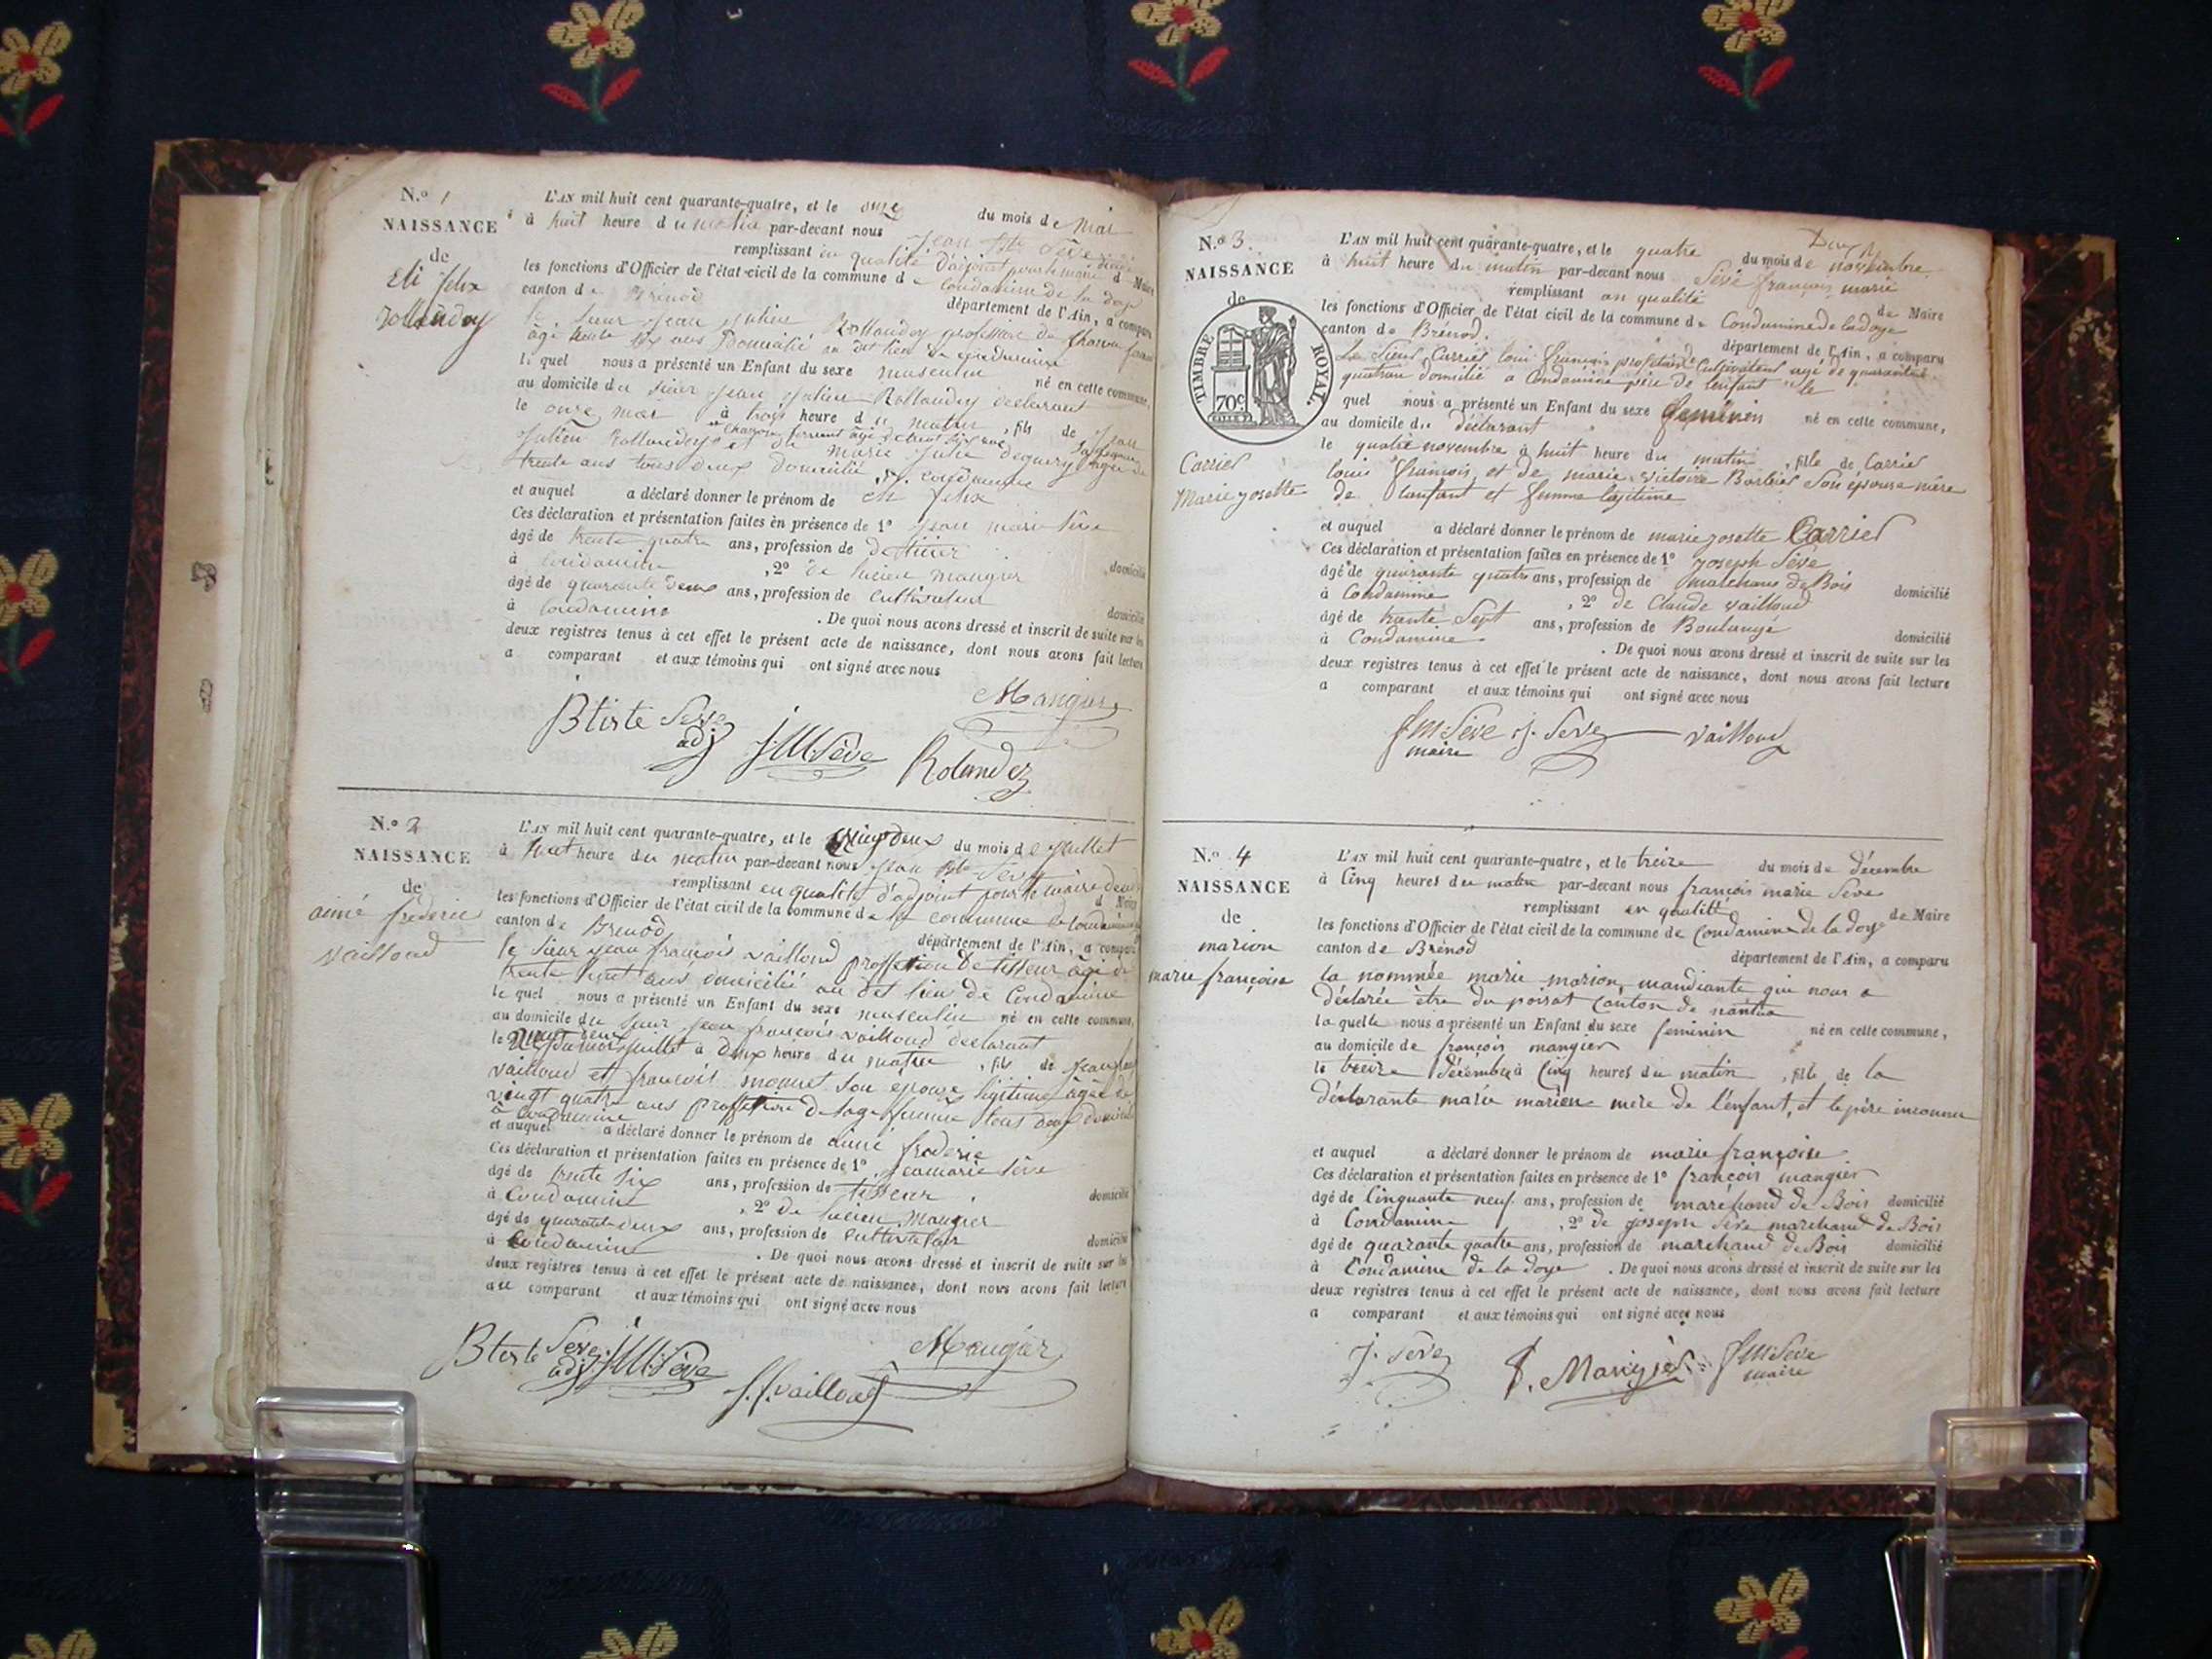 N.o 1
NAISSANCE
de
Eli felix
Rollandez
L'AN mil huit cent quarante-quatre, et le onze du mois de Mai
à huit heure du matin par-devant nous Jean Bte Sève
remplissant en qualité d'adjoint pour le maire d Maire
les fonctions d'Officier de l'état civil de la commune de Condamine de la doye
canton de Brénod département de l'Ain, a comparu
le sieur Jean Julien Rollandez profession de
âgé trente six ans Domicilié au dit lieu de Condamine
le quel nous a présenté un Enfant du sexe masculin né en cette commune,
au domicile du sieur Jean Julien Rollandez déclarant
le onze mai à trois heure du matin, fils de Jean
Julien Rollandez et de marie Julie âgée de
trente ans tous deux domicilié à condamine
et auquel a déclaré donner le prénom de eli felix
Ces déclaration et présentation faites en présence de 1o Jean marie Sève
âgé de trente quatre ans, profession de
à Condamine, 2o de lucien mangier domicilié
âgé de quarante deux ans, profession de Cultivateur
à Condamine domicilié
. De quoi nous avons dressé et inscrit de suite sur les
deux registres tenus à cet effet le présent acte de naissance, dont nous avons fait lecture
a comparant et aux témoins qui ont signé avec nous
Btiste Seve adj JM Sève Rolandez Mangier
N.o 2
NAISSANCE
de
aimé frederic
vailloud
L'AN mil huit cent quarante-quatre, et le vingt deux du mois de Juillet
à huit heure du matin par-devant nous Jean Bte Sève
remplissant en qualité d'adjoint pour le maire d Maire
les fonctions d'Officier de l'état civil de la commune de la commune de Condamine
canton de Brenod département de l'Ain, a comparu
le sieur jean françois vailloud proffession de tisseur âgé de
trente huit ans domicilié au dit lieu de Condamine
le quel nous a présenté un Enfant du sexe masculin né en cette commune,
au domicile du sieur jean françois vailloud déclarant
le vingt deux du mois juillet à deux heure du matin, fils de jean
vailloud et françoise monnet son épouse légitime âgée de
vingt quatre ans proffession de sage femme tous deux domicilié
à condamine
et auquel a déclaré donner le prénom de aimé frederic
Ces déclaration et présentation faites en présence de 1o Jean marie Sève
âgé de trente six ans, profession de tisseur
à Condamine, 2o de lucien Mangier domicilié
âgé de quarante deux ans, profession de cultivateur
à Condamine domicilié
. De quoi nous avons dressé et inscrit de suite sur les
deux registres tenus à cet effet le présent acte de naissance, dont nous avons fait lecture
au comparant et aux témoins qui ont signé avec nous
Btiste Seve adj JM Sève J.f. vailloud Mangier
N.o 3
NAISSANCE
de
TIMBRE ROYAL.
70c
Carrier
Marie josette
L'AN mil huit cent quarante-quatre, et le quatre du mois de novembre
à huit heure du matin par-devant nous Sève françois marie
remplissant en qualité de Maire
les fonctions d'Officier de l'état civil de la commune de Condamine de la doye
canton de Brénod. département de l'Ain, a comparu
Le Sieur Carrier loui françois profession Cultivateur agé de quarante
quatre an domicilié a Condamine père de lenfant le
quel nous a présenté un Enfant du sexe féminin né en cette commune,
au domicile du déclarant
le quatre novembre à huit heure du matin, fille de Carrier
louis françois et de marie victoire Barbier son épouse mère
de lanfant et femme légitime
et auquel a déclaré donner le prénom de marie josette Carrier
Ces déclaration et présentation faites en présence de 1o joseph Sève
âgé de quarante quatre ans, profession de Marchand de Bois
à Condamine, 2o de Claude vailloud domicilié
âgé de trante Sept ans, profession de Boulangé
à Condamine domicilié
. De quoi nous avons dressé et inscrit de suite sur les
deux registres tenus à cet effet le présent acte de naissance, dont nous avons fait lecture
a comparant et aux témoins qui ont signé avec nous
f M Sève maire j. Seve vailloud
N.o 4
NAISSANCE
de
marion
marie françoise
L'AN mil huit cent quarante-quatre, et le treize du mois de décembre
à Cinq heures du matin par-devant nous françois marie Seve
remplissant en qualité de Maire
les fonctions d'Officier de l'état civil de la commune de Condamine de la doye
canton de Brénod département de l'Ain, a comparu
la nommée marie marion mandiante qui nous a
déclarée être du poizat Canton de nantua
la quelle nous a présenté un Enfant du sexe feminin né en cette commune,
au domicile de françois mangier
le treize décembre à Cinq heures du matin, fille de la
déclarante marie marion mère de l'énfant, et le père inconnu
et auquel a déclaré donner le prénom de marie françoise
Ces déclaration et présentation faites en présence de 1o françois mangier
âgé de Cinquante neuf ans, profession de maréhand de Bois domicilié
à Condamine, 2o de joseph Sève marchand de Bois
âgé de quarante quatre ans, profession de marchand de Bois domicilié
à Condamine de la doye. De quoi nous avons dressé et inscrit de suite sur les
deux registres tenus à cet effet le présent acte de naissance, dont nous avons fait lecture
a comparant et aux témoins qui ont signé avec nous
J. Sève f. Mangier f M Sève maire